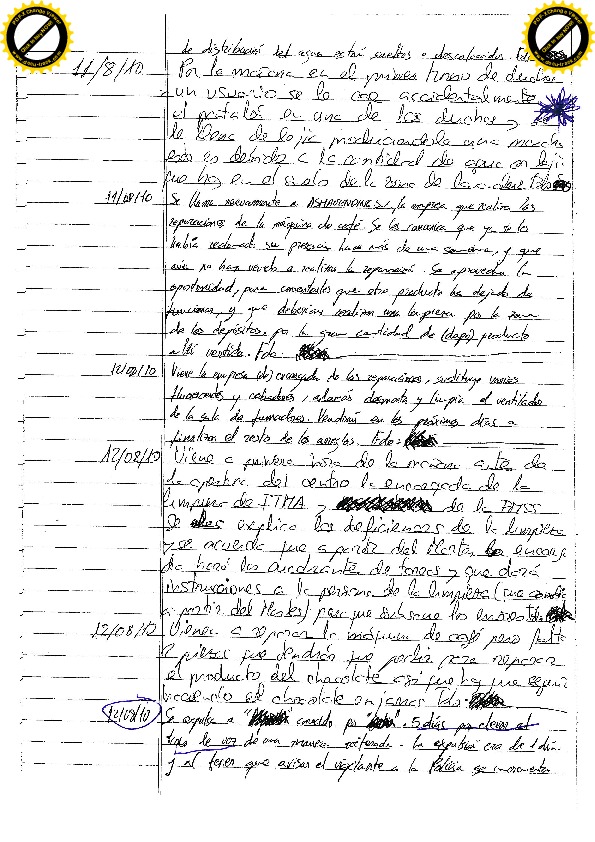 de distribución del agua están sueltos o descolgados. Fdo:
11/8/10 Por la mañana en el primer turno de duchas
un usuario se le cae accidentalmente
el pantalón en una de las duchas y se
le llena de lejía produciendole una mancha
eso es debido a la cantidad de agua con leji
que hay en el suelo de la zona de Fdo:
11/08/10 Se llama nuevamente a la empresa que realiza las
reparaciones de la máquina de café. Se les comunica que ya se les
había reclamado su presencia hace más de una semana, y que
aún no han venido a realizar la reparación. Se aprovecha la
oportunidad, para comentarles que otro producto ha dejado de
funcionar, y que deberían realizar una limpieza por la zona
de los depósitos por la gran cantidad de (dapo) producto
allí vertido. Fdo:
12/08/10 Viene la empresa (de) encargada de las reparaciones, sustituye varios
fluorescentes y cebadores, enlaces desmonta y limpia el ventilador
de la sala de fumadores. Vendrán en los próximos días a
finalizar el resto de los arreglos. Fdo:
12/08/10 Viene a primera hora de la mañana antes de
la apertura del centro la encargada de la
limpieza de ITMA y de la FMSS
Se explica las deficiencias de la limpieza
y se acuerda que a partir del Martes la encarga
da hará los cuadrante de tareas y que dará
instrucciones a la persona de la limpieza (que cambia
a partir del Martes) para que subsane los errores Fdo:
12/08/10 Vienen a reparar la máquina de café pero falta
piezas que tendrán que pedir para reparar
el producto del chocolate así que hay que seguir
el chocolate en jarras Fdo:
12/08/10 Se expulsa a " " conocido por " ". 5 días por elevar el
tono de voz de una manera reiterada. La expulsión era de 1 día
y al tener que avisar el vigilante a la Policía se incrementa